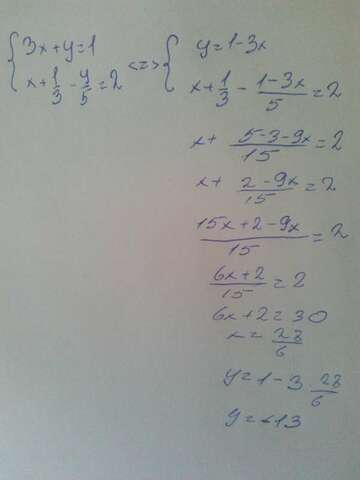 { 3x+y=1 <=> { y=1-3x
x+1/3 - y/5 = 2 x+1/3 - (1-3x)/5 = 2
x+ (5-3-9x)/15 = 2
x+ (2-9x)/15 = 2
(15x+2-9x)/15 = 2
(6x+2)/15 = 2
6x+2=30
x= 28/6
y=1-3·28/6
y=-13